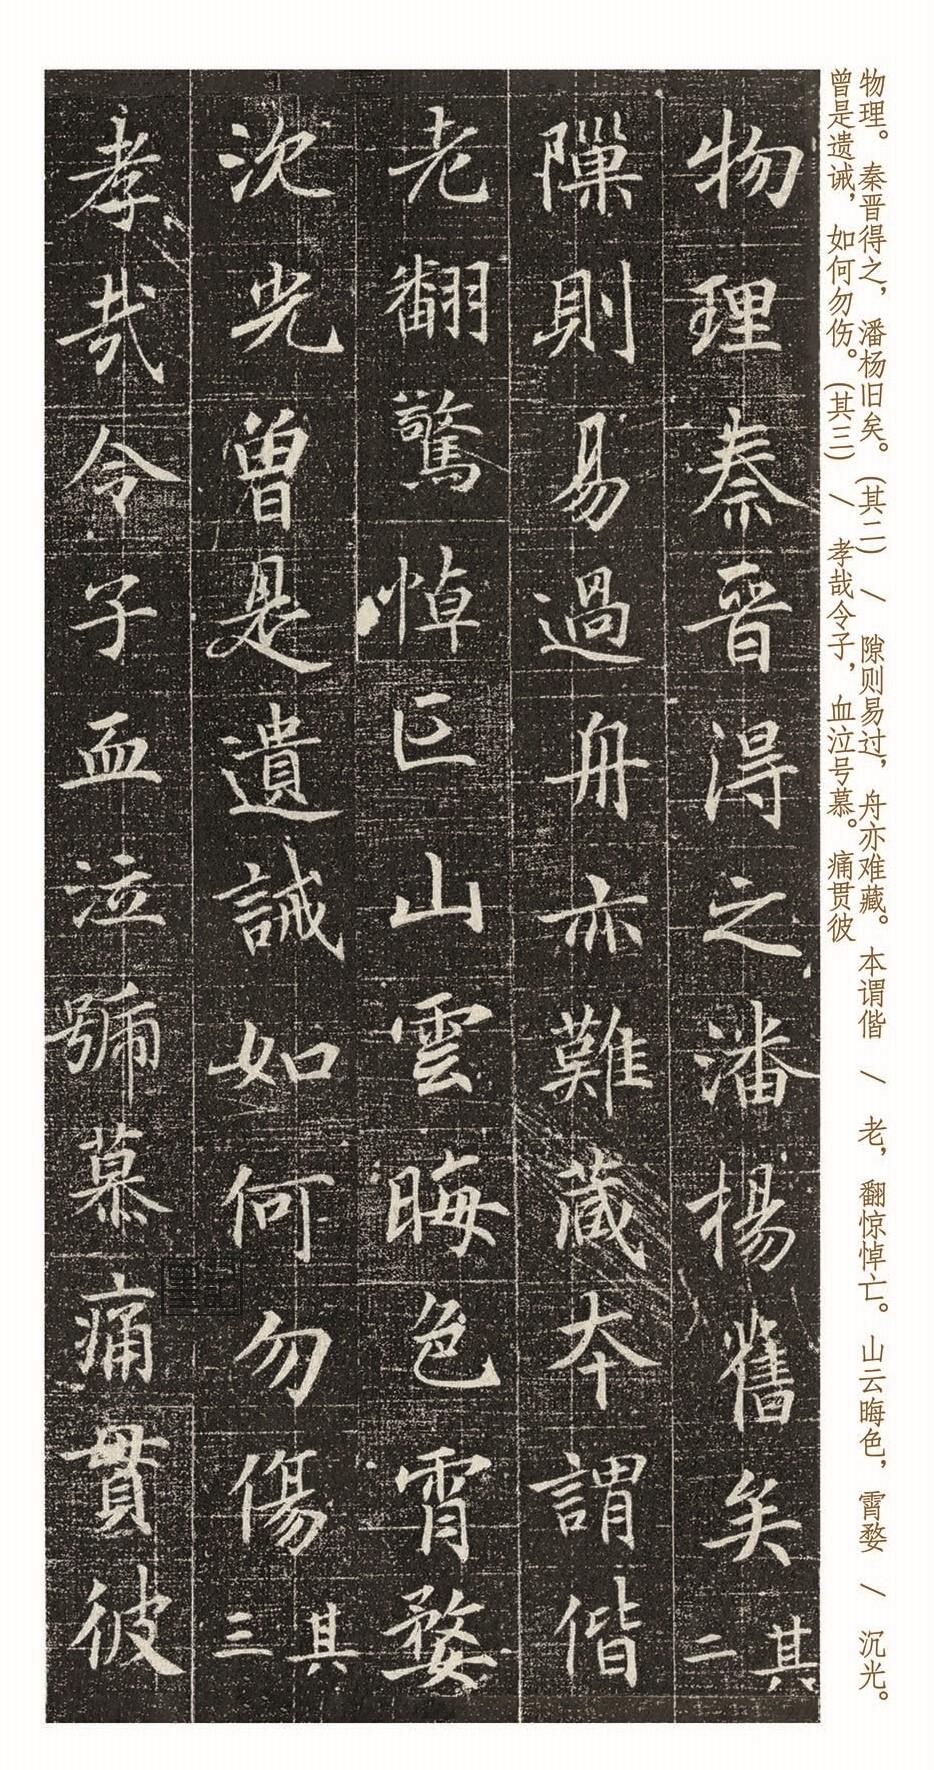 物理。秦晋得之，潘杨旧矣。(其二) / 隙则易过，舟亦难藏。本谓偕 / 老，翻惊悼亡。山云晦色，霄婺 / 沉光。
曾是遗诫，如何勿伤。(其三) / 孝哉令子，血泣号慕。痛贯彼
物理秦晉得之潘楊舊矣其二
隟則易過舟亦難藏本謂偕
老翻驚悼亡山雲晦色霄婺
沉光曾是遺誡如何勿傷其三
孝哉令子血泣號慕痛貫彼